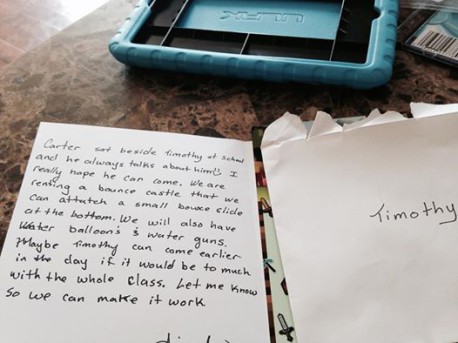 Carter sat beside Timothy at school
and he always talks about him!! I
really hope he can come. We are
renting a bounce castle that we
can attatch a small bounce slide
at the bottom. We will also have
Water balloon's & water guns.
Maybe Timothy can come earlier
in the day if it would be to much
with the whole class. Let me know
so we can make it work
Timothy